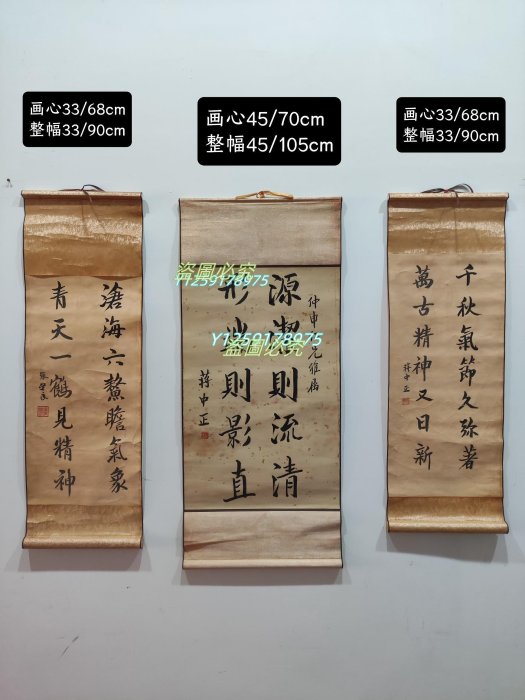 画心33/68cm
整幅33/90cm
滄海六鰲瞻氣象
青天一鶴見精神
画心45/70cm
整幅45/105cm
源潔則流清
形端則影直
蔣中正
盜圖必究
Y1259178975
Y1259178975
盜圖必究
画心33/68cm
整幅33/90cm
千秋氣節久弥著
萬古精神又日新
蔣中正